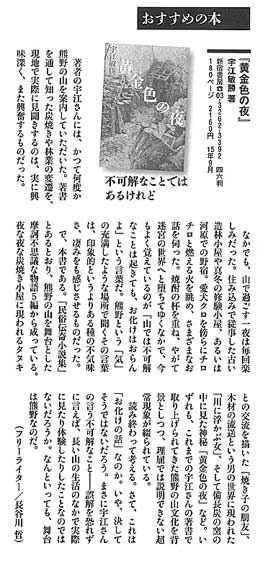 おすすめの本
『黄金色の夜』
宇江敏勝 著
新宿書房☎03・3262・3392 四六判
180ページ 2160円 15年6月
宇江敏勝
黄金色の夜
不可解なことでは
あるけれど
著者の宇江さんには、かつて何度か
熊野の山を案内していただいた。著書
を通して知った炭焼きや林業の変遷を、
現地で実際に見聞きするのは、実に興
味深く、また興奮するものだった。
なかでも、山で過ごす一夜は毎回楽
しみだった。住み込みで従事した古い
造林小屋や真冬の修験小屋、あるいは
河原での野宿。愛犬タクを傍らにチロ
チロと燃える火を眺め、さまざまなお
話を伺った。焼酎の杯を重ね、やがて
迷宮の世界へと堕ちてゆくなかで、今
もよく覚えているのが「山では不可解
なことは起きても、お化けはおらん
よ」という言葉だ。熊野という「気」
の充満したような場所で聞くその言葉
は、印象的というよりある種の不気味
さ、凄みをも感じさせるものだった。
で、本書である。「民俗伝奇小説集」
とあるとおり、熊野の山を舞台とした
摩訶不思議な物語5編から成っている。
夜な夜な炭焼き小屋に現われるタヌキ
との交流を描いた「焼き子の朋友」、
木材の流送という男の世界に現われた
「川に浮かぶ女」、そして備長炭の窯の
中に見た神秘「黄金色の夜」など。い
ずれも、これまでの宇江さんの著書で
取り上げられてきた熊野の山文化を背
景としつつ、理屈では説明できない超
常現象が綴られている。
読み終わって考える。さて、これは
「お化けの話」なのか。いや、決して
そうではないだろう。まさに宇江さん
の言う不可解なこと――誤解を恐れず
に言えば、長い山の生活のなかで実際
に見たり体験したりしたことなのでは
ないだろうか。なんといっても、舞台
は熊野なのだ。
（フリーライター／長谷川 哲）